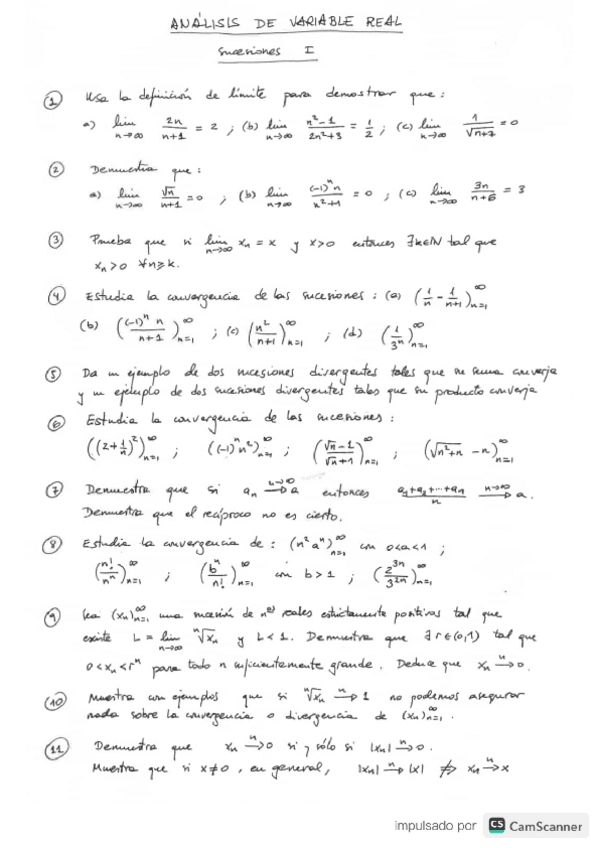 ANÁLISIS DE VARIABLE REAL
Sucesiones I
① Usa la definición de límite para demostrar que:
a) lim n→∞ 2n/(n+1) = 2 ; (b) lim n→∞ (n²-1)/(2n²+3) = 1/2 ; (c) lim n→∞ 1/√(n+7) = 0
② Demuestra que:
a) lim n→∞ √n/(n+1) = 0 ; (b) lim n→∞ (-1)ⁿn/(n²+1) = 0 ; (c) lim n→∞ 3n/(n+6) = 3
③ Prueba que si lim n→∞ xₙ = x y x>0 entonces ∃k∈ℕ tal que
xₙ>0 ∀n≥k.
④ Estudia la convergencia de las sucesiones: (a) (1/n - 1/(n+1))∞n=1
(b) ((-1)ⁿ n/(n+1))∞n=1 ; (c) (n²/(n+1))∞n=1 ; (d) (1/3ⁿ)∞n=1
⑤ Da un ejemplo de dos sucesiones divergentes tales que su suma converja
y un ejemplo de dos sucesiones divergentes tales que su producto converja
⑥ Estudia la convergencia de las sucesiones:
((2+1/n)²)∞n=1 ; ((-1)ⁿn²)∞n=1 ; ((√n-1)/(√n+1))∞n=1 ; (√(n²+n) - n)∞n=1
⑦ Demuestra que si aₙ n→∞→ a entonces (a₁+a₂+···+aₙ)/n n→∞→ a.
Demuestra que el recíproco no es cierto.
⑧ Estudia la convergencia de: (n²aⁿ)∞n=1 con 0<a<1 ;
(n!/nⁿ)∞n=1 ; (bⁿ/n!)∞n=1 con b>1 ; (2³ⁿ/3²ⁿ)∞n=1
⑨ Sea (xₙ)∞n=1 una sucesión de nos reales estrictamente positivos tal que
existe L = lim n→∞ ⁿ√xₙ y L<1. Demuestra que ∃ r∈(0,1) tal que
0<xₙ<rⁿ para todo n suficientemente grande. Deduce que xₙ n→ 0.
⑩ Muestra con ejemplos que si ⁿ√xₙ n→ 1 no podemos asegurar
nada sobre la convergencia o divergencia de (xₙ)∞n=1.
⑪ Demuestra que xₙ n→ 0 si y sólo si |xₙ| n→ 0.
Muestra que si x≠0, en general, |xₙ| n→ |x| ⇏ xₙ n→ x
impulsado por CS CamScanner